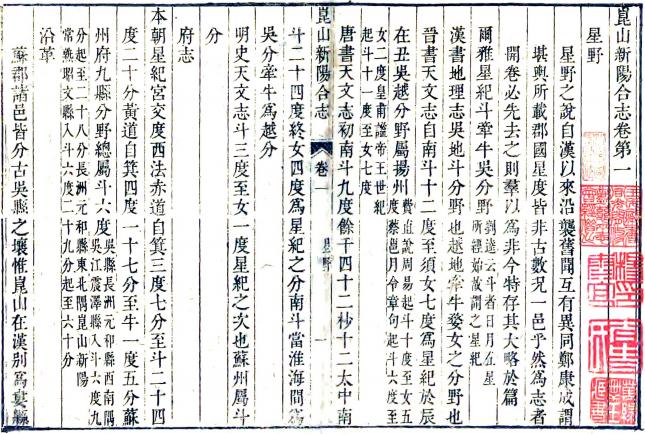 崑山新陽合志卷第一
星野
星野之說自漢以來沿襲舊聞互有異同鄭康成謂
堪輿所載郡國星度皆非古數況一邑乎然為志者
開卷必先去之則羣以為非今特存其大略於篇
爾雅星紀斗牽牛吳分野
漢書地理志吳地斗分野也越地牽牛婺女之分野也
晉書天文志自南斗十二度至須女七度為星紀於辰
在丑吳越分野屬揚州費直說周易起斗十度至女五
度蔡邕月令章句起斗六度至
女二度皇甫謐帝王世紀
起斗十一度至女七度
唐書天文志初南斗九度餘千四十二秒十二太中南
崑山新陽合志
卷一
星野
斗二十四度終女四度為星紀之分南斗當淮海間為
吳分牽牛為越分
明史天文志斗三度至女一度星紀之次也蘇州屬斗
分
府志
本朝星紀宮交度西法赤道自箕三度七分至斗二十四
度二十分黃道自箕四度一十七分至牛一度五分蘇
州府九縣分野總屬斗六度吳縣長洲元和縣西南隅
吳江震澤縣入斗六度九
分起至二十八分長洲元和縣東北隅崑山新陽
常熟昭文縣入斗六度二十九分起至六十分
沿革
蘇郡諸邑皆分古吳縣之壤惟崑山在漢別為婁縣